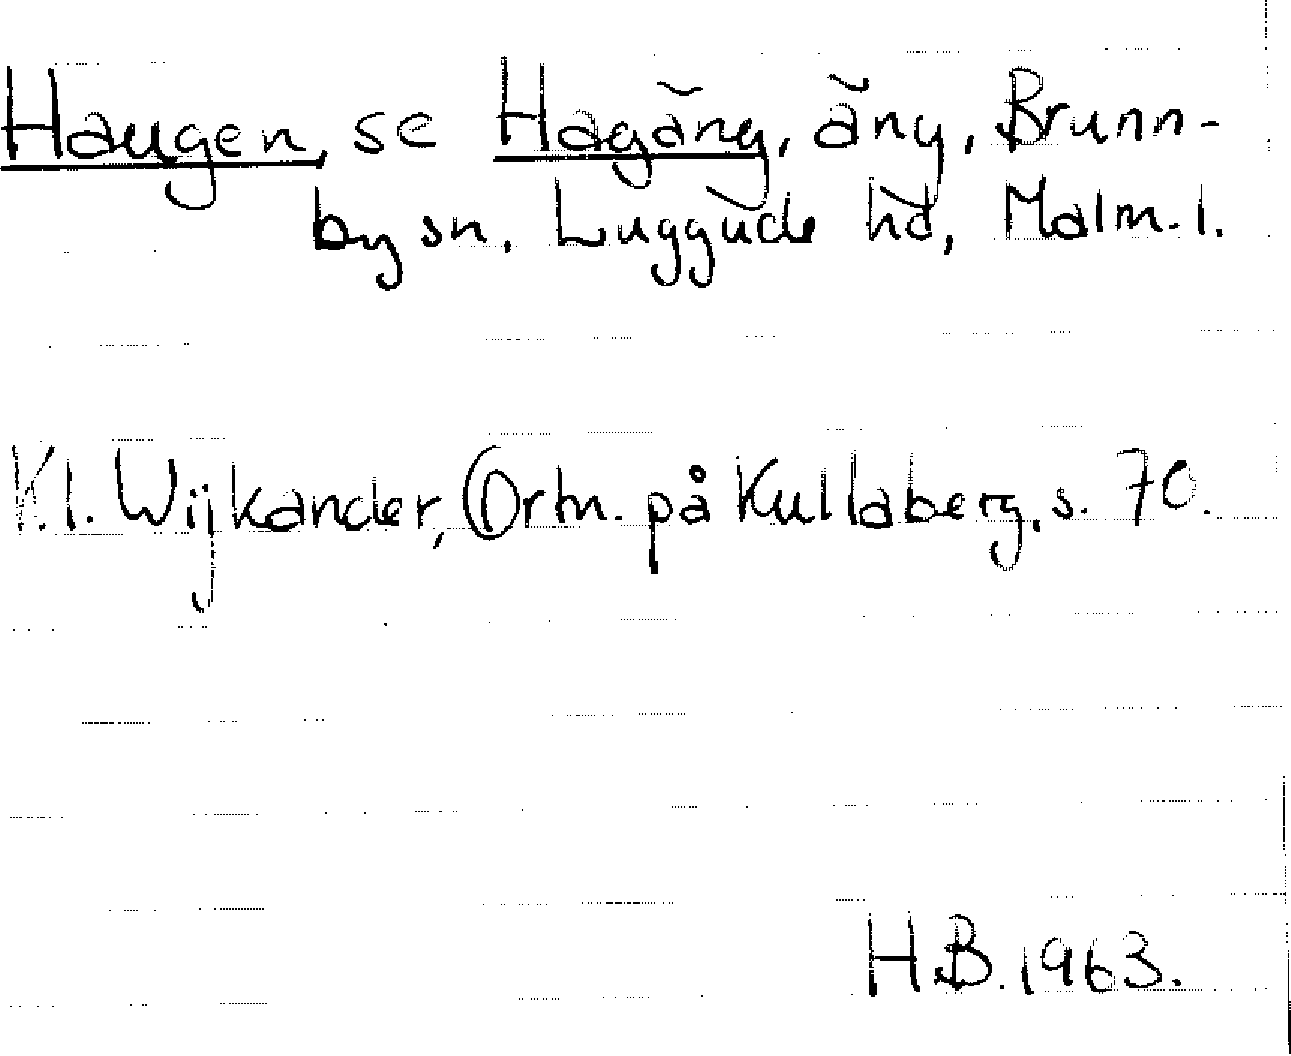 Haugen, se Hagäng, äng, Brunn-
by sn. Luggude hd, Malm. l.
K.l. Wijkander, Ortn. på Kullaberg, s. 70.
H.B. 1963.